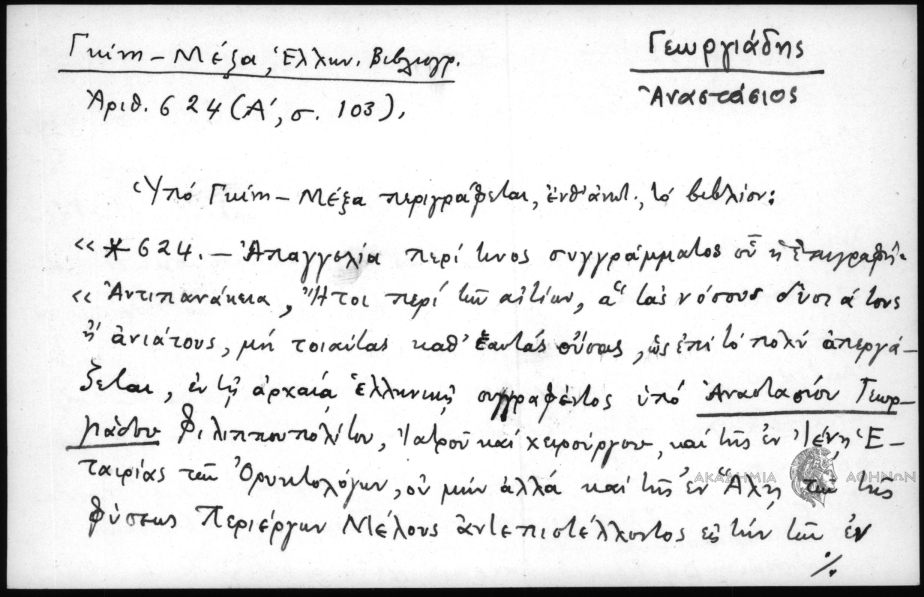 Γκίνη – Μέξα, Ἑλλην. Βιβλιογρ.
Γεωργιάδης
Ἀναστάσιος
Ἀριθ. 624 (Α', σ. 103).
Ὑπό Γκίνη – Μέξα περιγράφεται, ἐνθ' ἀνωτ., τό βιβλίον:
«*624. – Ἀπαγγελία περί τινος συγγράμματος οὗ ἡ ἐπιγραφή·
« Ἀντιπανάκεια, Ἤτοι περί τῶν αἰτίων, ἅ τάς νόσους δυσιάτους
ἤ ἀνιάτους, μή τοιαύτας καθ' ἑαυτάς οὔσας, ὡς ἐπί τό πολύ ἀπεργά-
ζεται, ἐν τῇ ἀρχαίᾳ Ἑλληνικῇ συγγραφέντος ὑπό Ἀναστασίου Γεωρ-
γιάδου Φιλιππουπολίτου, Ἰατροῦ καί χειρούργου, καί τῆς ἐν Ἰένῃ Ἑ-
ταιρίας τῶν Ὀρυκτολόγων, οὐ μήν ἀλλά καί τῆς ἐν Ἅλῃ τῶν τῆς
φύσεως Περιέργων Μέλους ἀντεπιστέλλοντος εἰς τήν τῶν ἐν
./.
ΑΚΑΔΗΜΙΑ ΑΘΗΝΩΝ